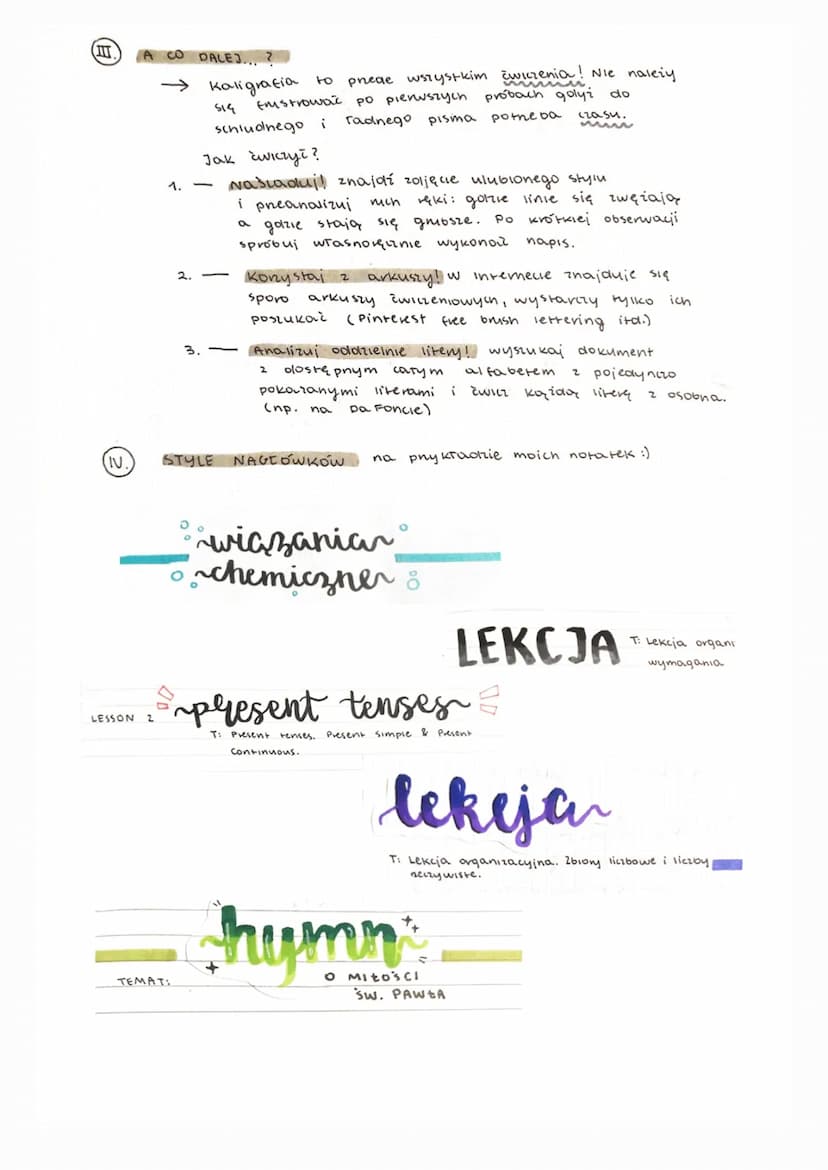 III. A CO DALEJ...?
→ Kaligrafia to przede wszystkim ćwiczenia! Nie należy
się frustrować po pierwszych próbach gdyż do
schludnego i ładnego pisma potrzeba czasu.
Jak ćwiczyć?
1. — Naśladuj! znajdź zdjęcie ulubionego stylu
i przeanalizuj ruch ręki: gdzie linie się zwężają
a gdzie stają się grubsze. Po krótkiej obserwacji
spróbuj własnoręcznie wykonać napis.
2. — Korzystaj z arkuszy! W internecie znajduje się
sporo arkuszy ćwiczeniowych, wystarczy tylko ich
poszukać (Pinterest free brush lettering itd.)
3. — Analizuj oddzielnie litery! wyszukaj dokument
z dostępnym całym alfabetem z pojedynczo
pokazanymi literami i ćwicz każdą literę z osobna.
(np. na DaFoncie)
IV. STYLE NAGŁÓWKÓW na przykładzie moich notatek :)
wiązania
chemiczne
LEKCJA T: Lekcja organi
wymagania
LESSON 2 present tenses
T: Present tenses. Present Simple & Present
Continuous.
lekcja
T: Lekcja organizacyjna. Zbiory liczbowe i liczby
rzeczywiste.
hymn
TEMAT: O MIŁOŚCI
ŚW. PAWŁA